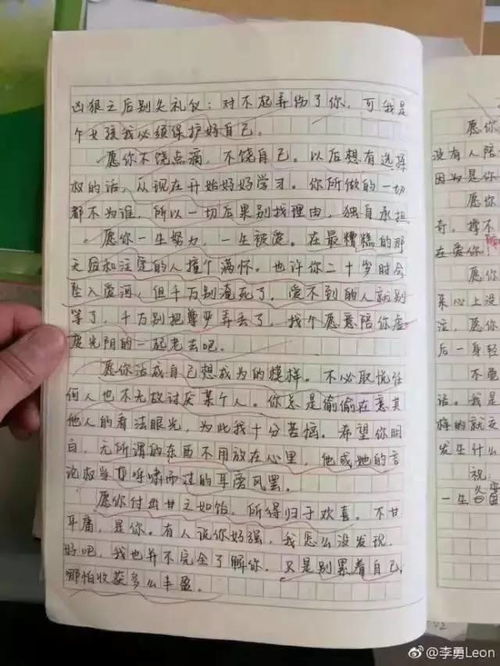 凶狠之后别失礼仪：对不起弄伤了你，可我是
个女孩我必须保护好自己。
愿你不饶点滴，不饶自己。以后想有选择
权的话，从现在开始好好学习。你所做的一切
都不为谁，所以一切后果别找理由，独自承担。
愿你一生努力，一生被爱。在最糟糕的那
天后和注定的人撞个满怀。也许你二十岁时会
坠入爱河，但千万别淹死了，爱不到的人就别
等了，千万别把尊严弄丢了，找个愿意陪你虚
度光阴的一起老去吧。
愿你活成自己想成为的模样。不必取悦任
何人也不无故讨厌某个人。你总是偷偷在意其
他人的看法眼光，为此我十分苦恼。希望你明
白，无所谓的东西不用放在心里，他或她的言
论权当耳呼啸而过的耳旁风罢。
愿你付出甘之如饴，所得归于欢喜。不甘
平庸，是你。有人说你好强，我怎么没发现，
好吧，我也并不完全了解你，只是别累着自己，
哪怕收获多么丰盈。
愿你
没有人陪
因为是你
愿你
奇，撑不
在爱你！
愿你
来心上没
注，愿你
后一身轻
不要
话。我是
样的就文
发生什么
祝，
一生
@李勇Leon